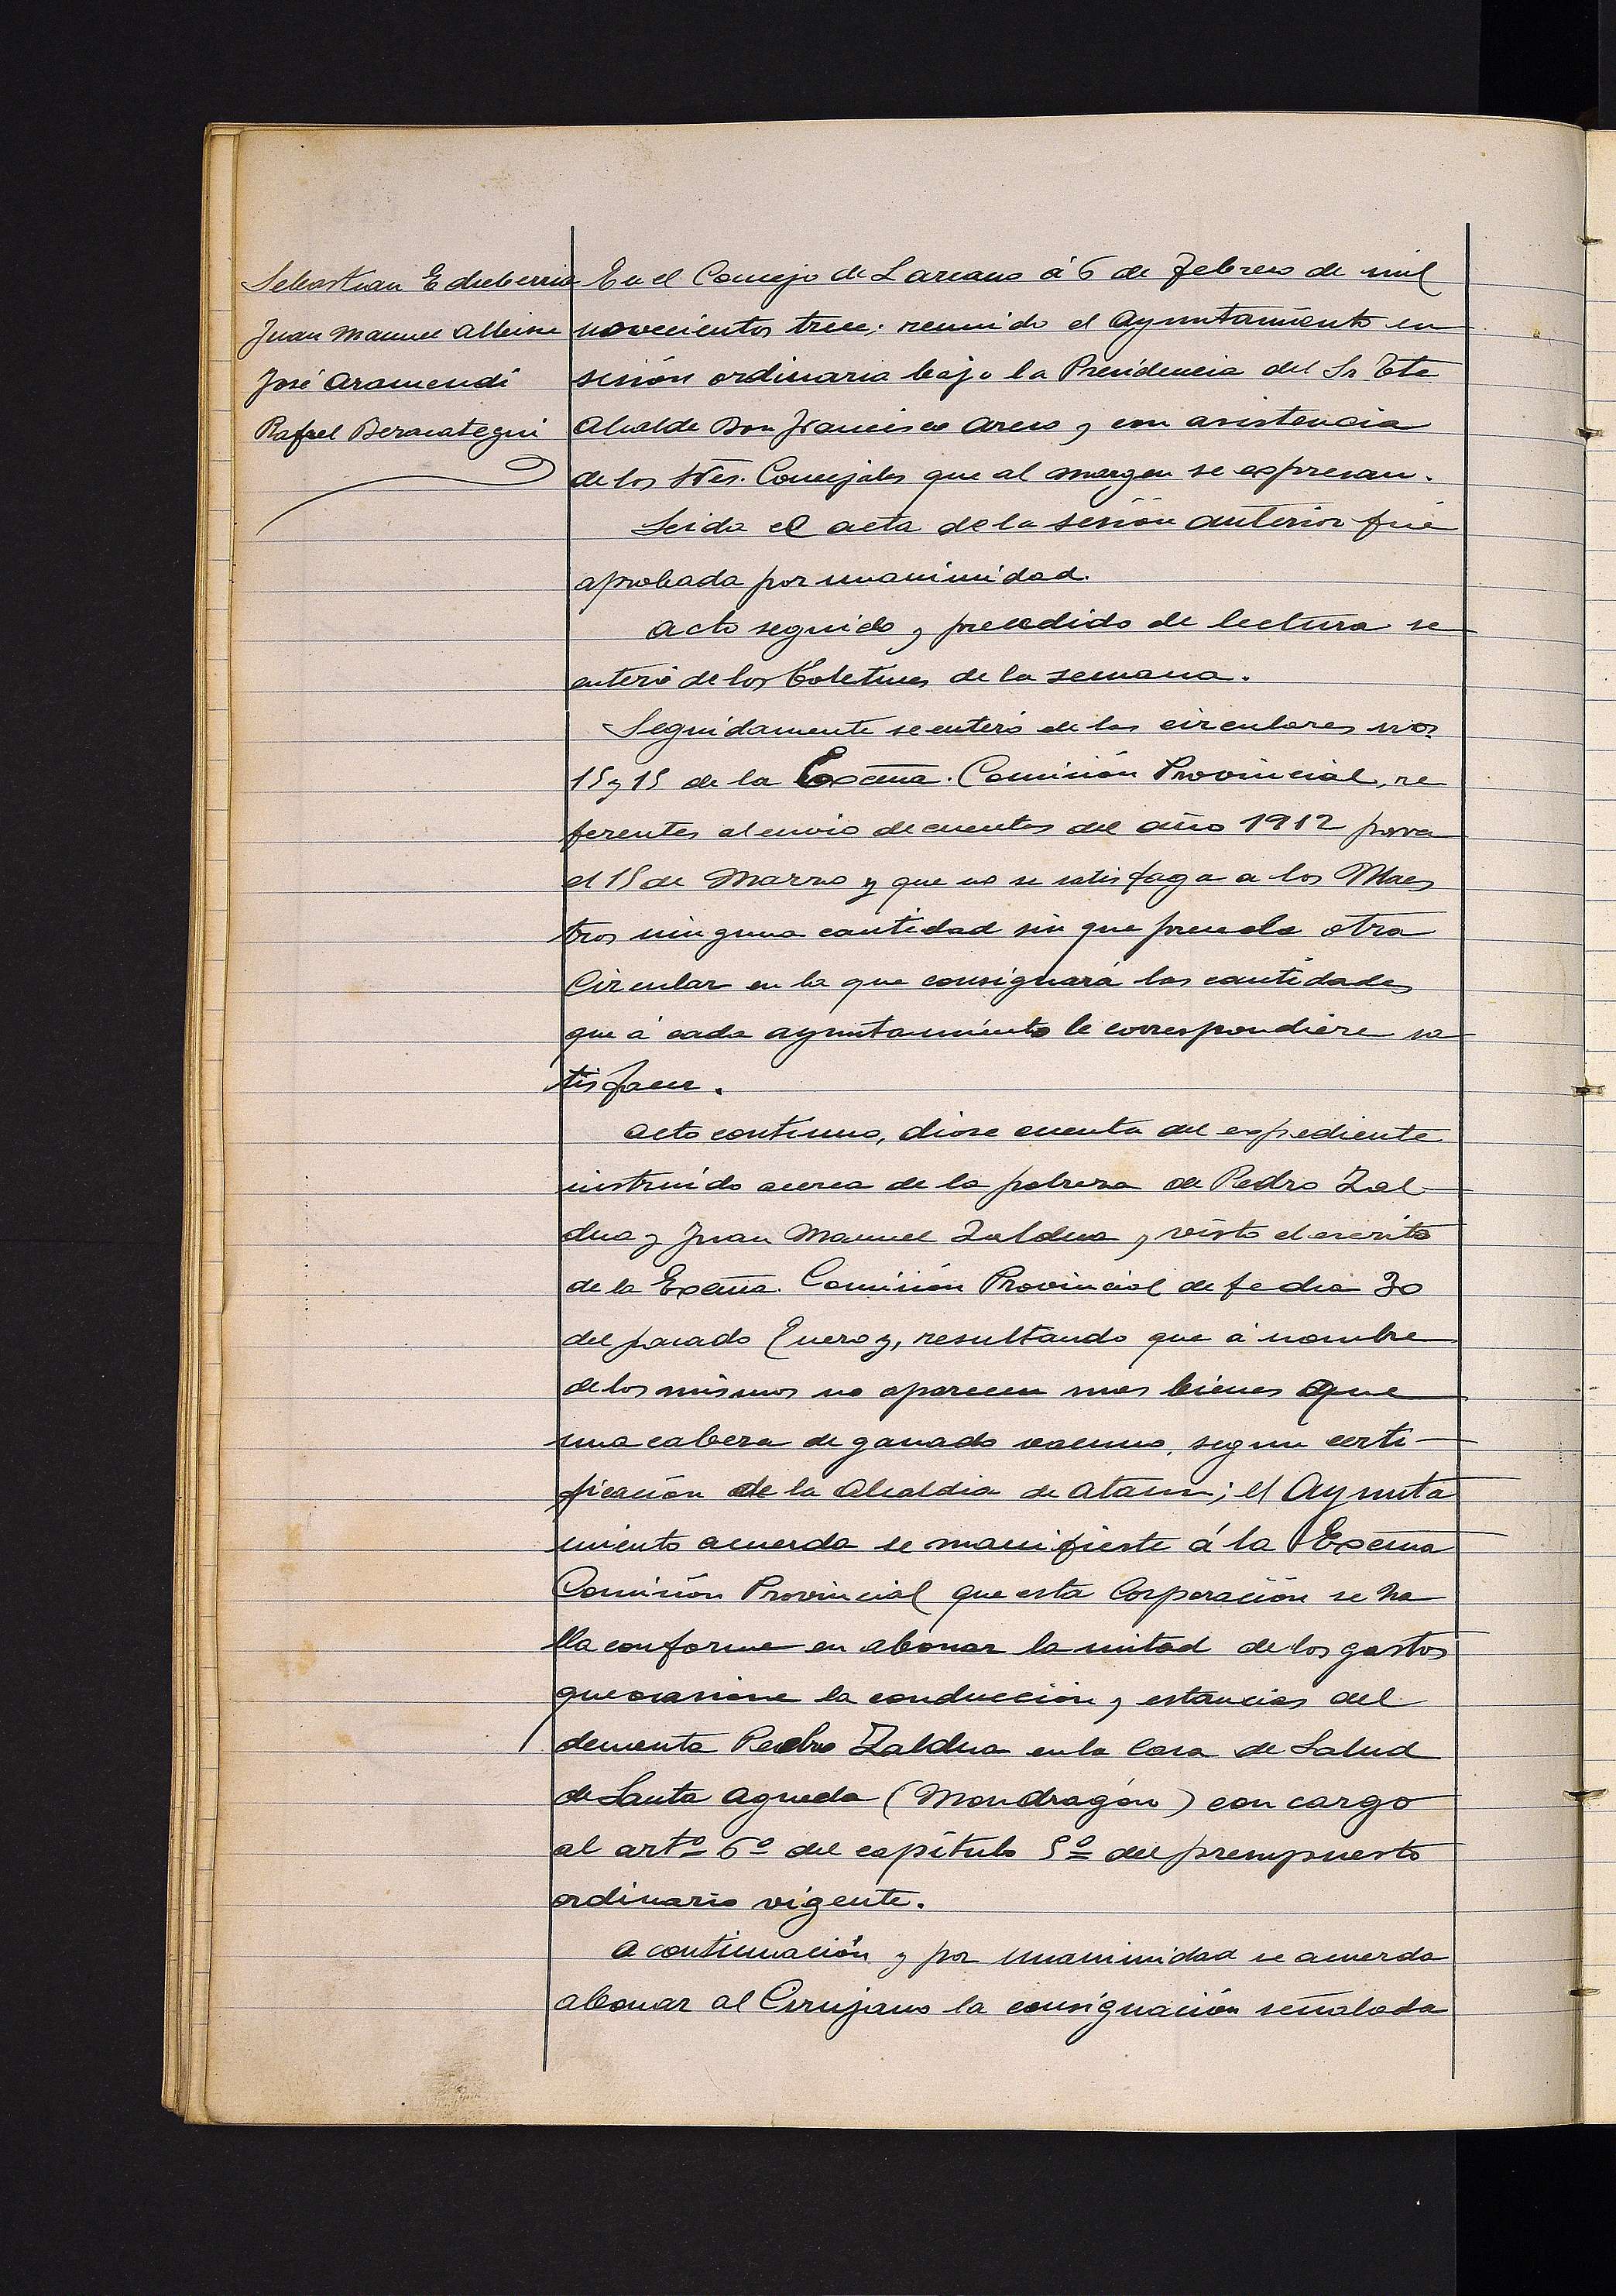 Sebastian Echeberria
Juan Manuel Albisu
José Aramendi
Rafael Beracategui
En el Concejo de Lazcano á 6 de Febrero de mil
novecientos trece; reunido el Ayuntamiento en
sesión ordinaria bajo la Presidencia del Sr Tte
Alcalde Don Francisco y con asistencia
de los Sres. Concejales que al margen se expresan.
Leida el acta de la sesión anterior fué
aprobada por unanimidad.
Acto seguido y precedido de lectura se
enteró de los Boletines de la semana.
Seguidamente se enteró de las circulares nos
15 y 15 de la Excma. Comisión Provincial, re
ferentes al envio de cuentas del año 1912 para
el 15 de Marzo y que no se satisfaga a los Maes
tros ninguna cantidad sin que preceda otra
Circular en la que consignará las cantidades
que á cada ayuntamiento le correspondiere sa
tisfacer.
Acto continuo, diose cuenta del expediente
instruido acerca de la pobreza de Pedro Zal
dua y Juan Manuel Zaldua y visto el escrito
de la Excma. Comisión Provincial de fecha 30
del pasado Enero y, resultando que á nombre
de los mismos no aparecen mas bienes que
una cabeza de ganado vacuno, segun certi-
ficación de la Alcaldia de Ataun; el Ayunta
miento acuerda se manifieste á la Excma
Comisión Provincial que esta Corporación se ha
lla conforme en abonar la mitad de los gastos
que ocasione la conducción y estancias del
demente Pedro Zaldua en la Casa de Salud
de Santa Agueda (Mondragón) con cargo
al artº 6º del capítulo 5º del presupuesto
ordinario vigente.
A continuación y por unanimidad se acuerda
abonar al Cirujano la consignación señalada